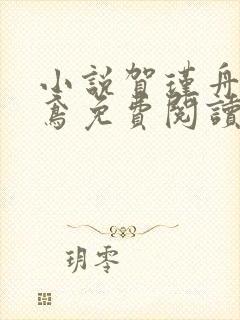 小說賀瑾舟
鳶免費閱讀
玥零